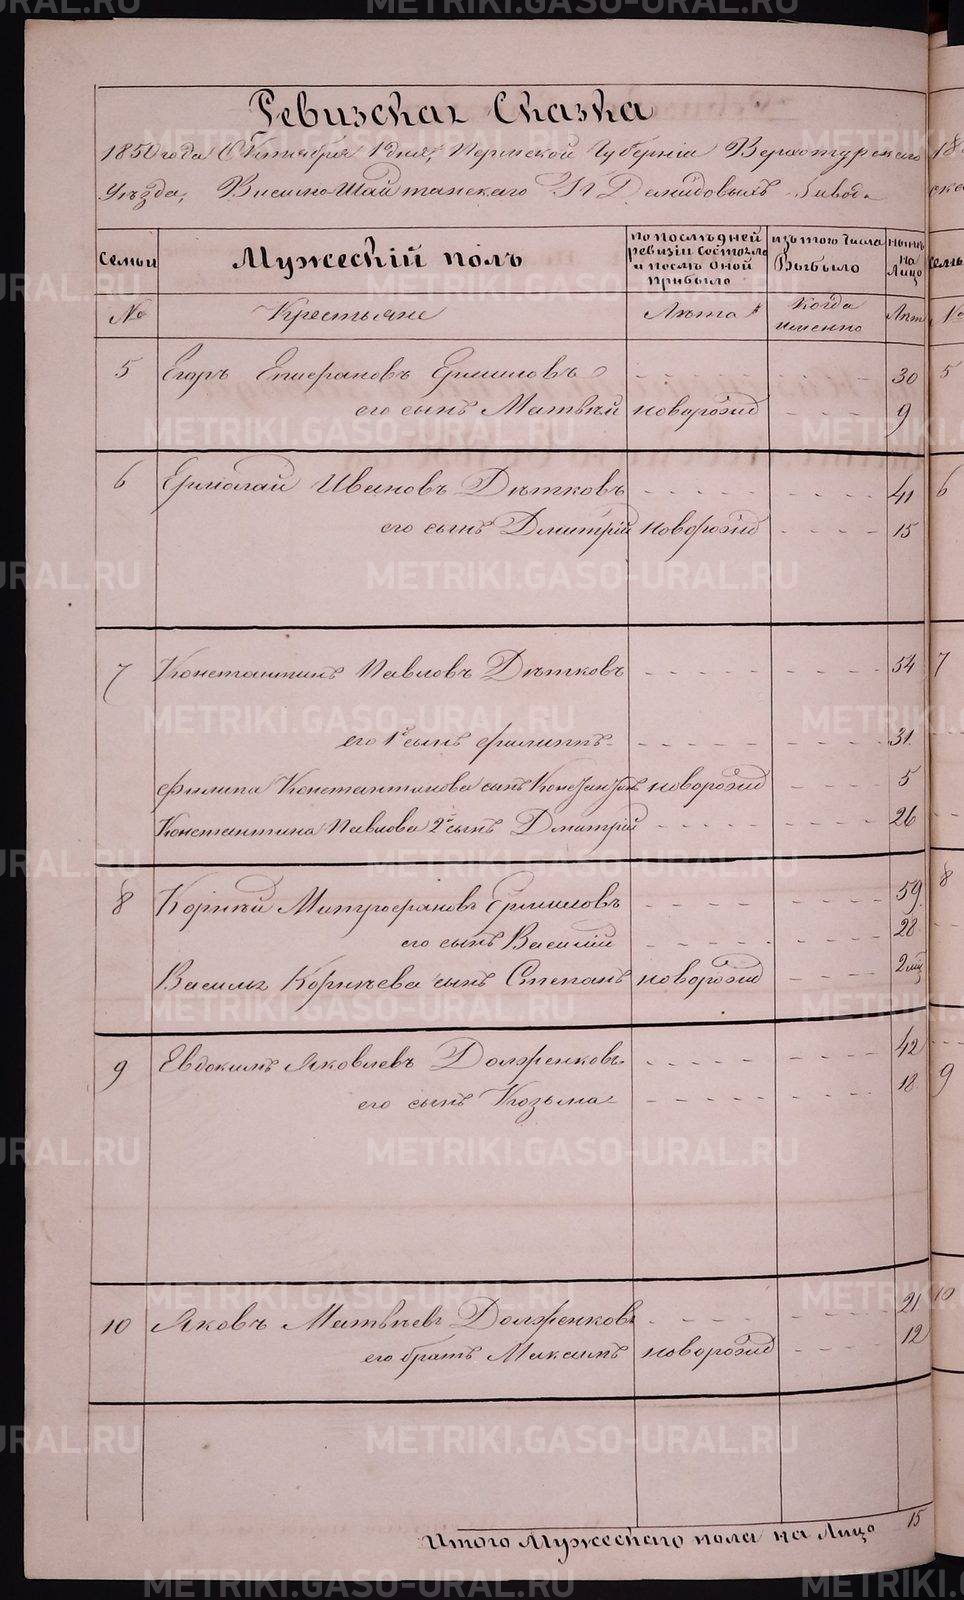 Ревизская Сказка
1850 года Октября 1 дня, Пермской Губерніи Верхотурскаго
Уѣзда, Висимо-Шайтанскаго Г.г. Демидовыхъ Завода
Семьи
Мужескій полъ
по послѣдней ревизіи Состояло и послѣ Оной Прибыло
изъ того Числа Выбыло
нынѣ на Лицо
№
Крестьяне
Лѣта
когда именно
Лѣт
5 Егоръ Епифановъ Ермиловъ 30
его сынъ Матвѣй новорожд 9
6 Ермолай Ивановъ Дѣтковъ 41
его сынъ Дмитрій новорожд 15
7 Константинъ Павловъ Дѣтковъ 54
его 1й сынъ Филиппъ 31
Филипа Константинова сынъ Константинъ новорожд 5
Константина Павлова 2й сынъ Дмитрій 26
8 Корнѣй Митрофановъ Ермиловъ 59
его сынъ Василій 28
Василья Корнѣева сынъ Степанъ новорожд 2 мц
9 Евдокимъ Яковлевъ Долженковъ 42
его сынъ Козьма 18
10 Яковъ Матвѣевъ Долженковъ 21
его братъ Максимъ новорожд 12
Итого Мужескаго пола на Лицо 15
18
ска
семь
№
5
6
7
8
9
10
METRIKI.GASO-URAL.RU